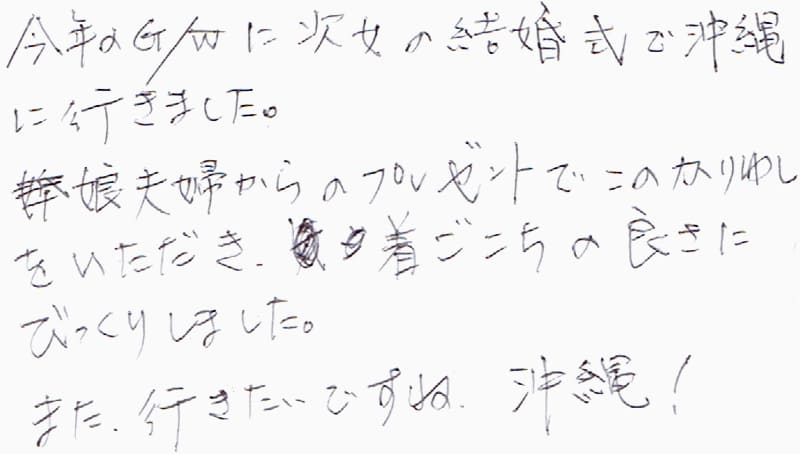 今年のG/Wに次女の結婚式で沖縄
に行きました。
娘夫婦からのプレゼントでこのかりゆし
をいただき、着ごこちの良さに
びっくりしました。
また、行きたいですね、沖縄!